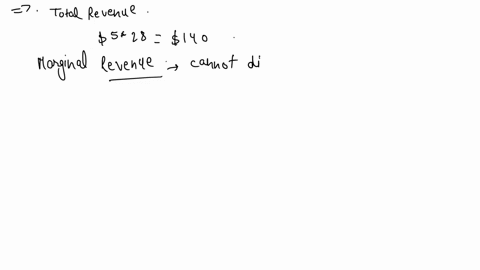 =>. Total Revenue.
$5*28 = $140
Marginal Revenue → cannot di